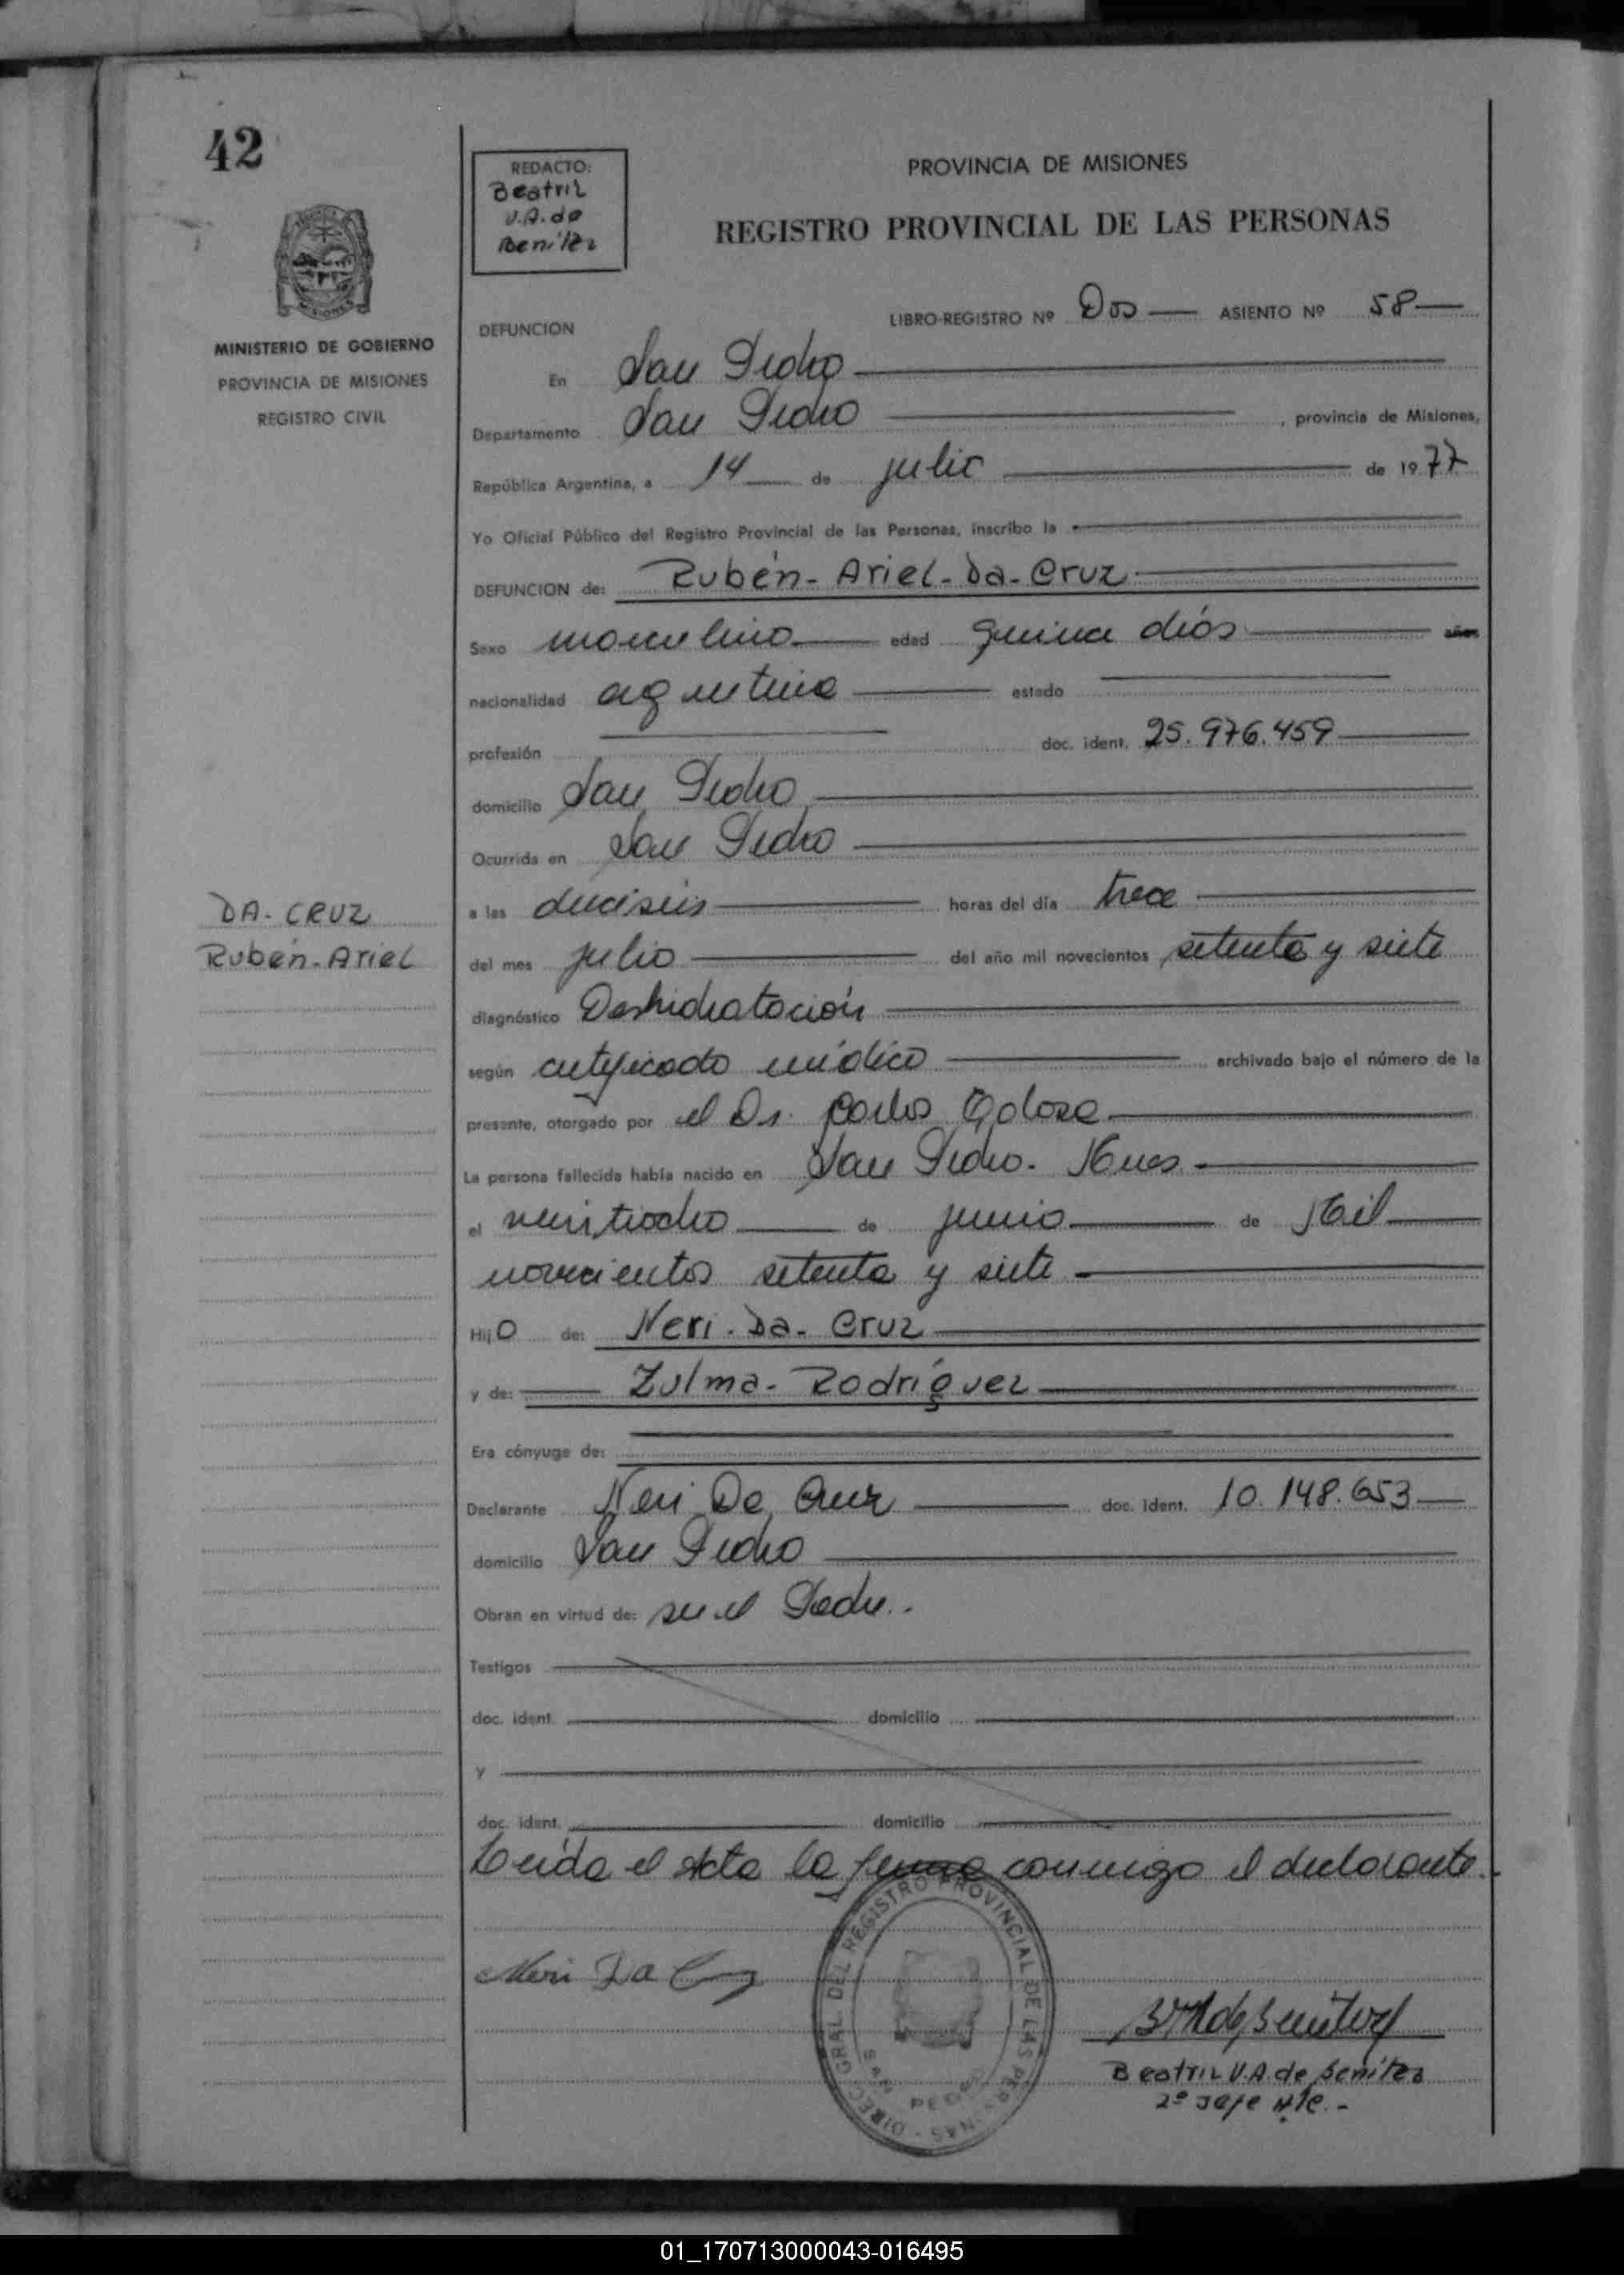 42
REDACTO:
Beatriz
V.A. de
Benitez
PROVINCIA DE MISIONES
REGISTRO PROVINCIAL DE LAS PERSONAS
MISIONES
MINISTERIO DE GOBIERNO
PROVINCIA DE MISIONES
REGISTRO CIVIL
LIBRO-REGISTRO Nº Dos ASIENTO Nº 58
DEFUNCION
En San Pedro
Departamento San Pedro, provincia de Misiones,
República Argentina, a 14 de julio de 1977
Yo Oficial Público del Registro Provincial de las Personas, inscribo la
DEFUNCION de: Rubén-Ariel-Da-Cruz
Sexo masculino edad quince días años
nacionalidad argentina estado
profesión doc. ident. 25.976.459
domicilio San Pedro
Ocurrida en San Pedro
DA-CRUZ
Rubén-Ariel
a las dieciseis horas del día trece
del mes julio del año mil novecientos setenta y siete
diagnóstico Deshidratación
según certificado médico archivado bajo el número de la
presente, otorgado por el Dr. Carlos
La persona fallecida había nacido en San Pedro-
el veintiocho de junio de Mil
novecientos setenta y siete
Hijo de: Neri-Da-Cruz
y de: Zulma-Rodríguez
Era cónyuge de:
Declarante Neri Da Cruz doc. ident. 10.148.653
domicilio San Pedro
Obran en virtud de: ser el Padre.-
Testigos
doc. ident. domicilio
y
doc. ident. domicilio
Leida el Acta la firma conmigo el declarante.
Neri Da Cruz
DIREC. GRAL. DEL REGISTRO PROVINCIAL DE LAS PERSONAS
SAN PEDRO
Beatriz V.A. de Benitez
2º Jefe
01_170713000043-016495